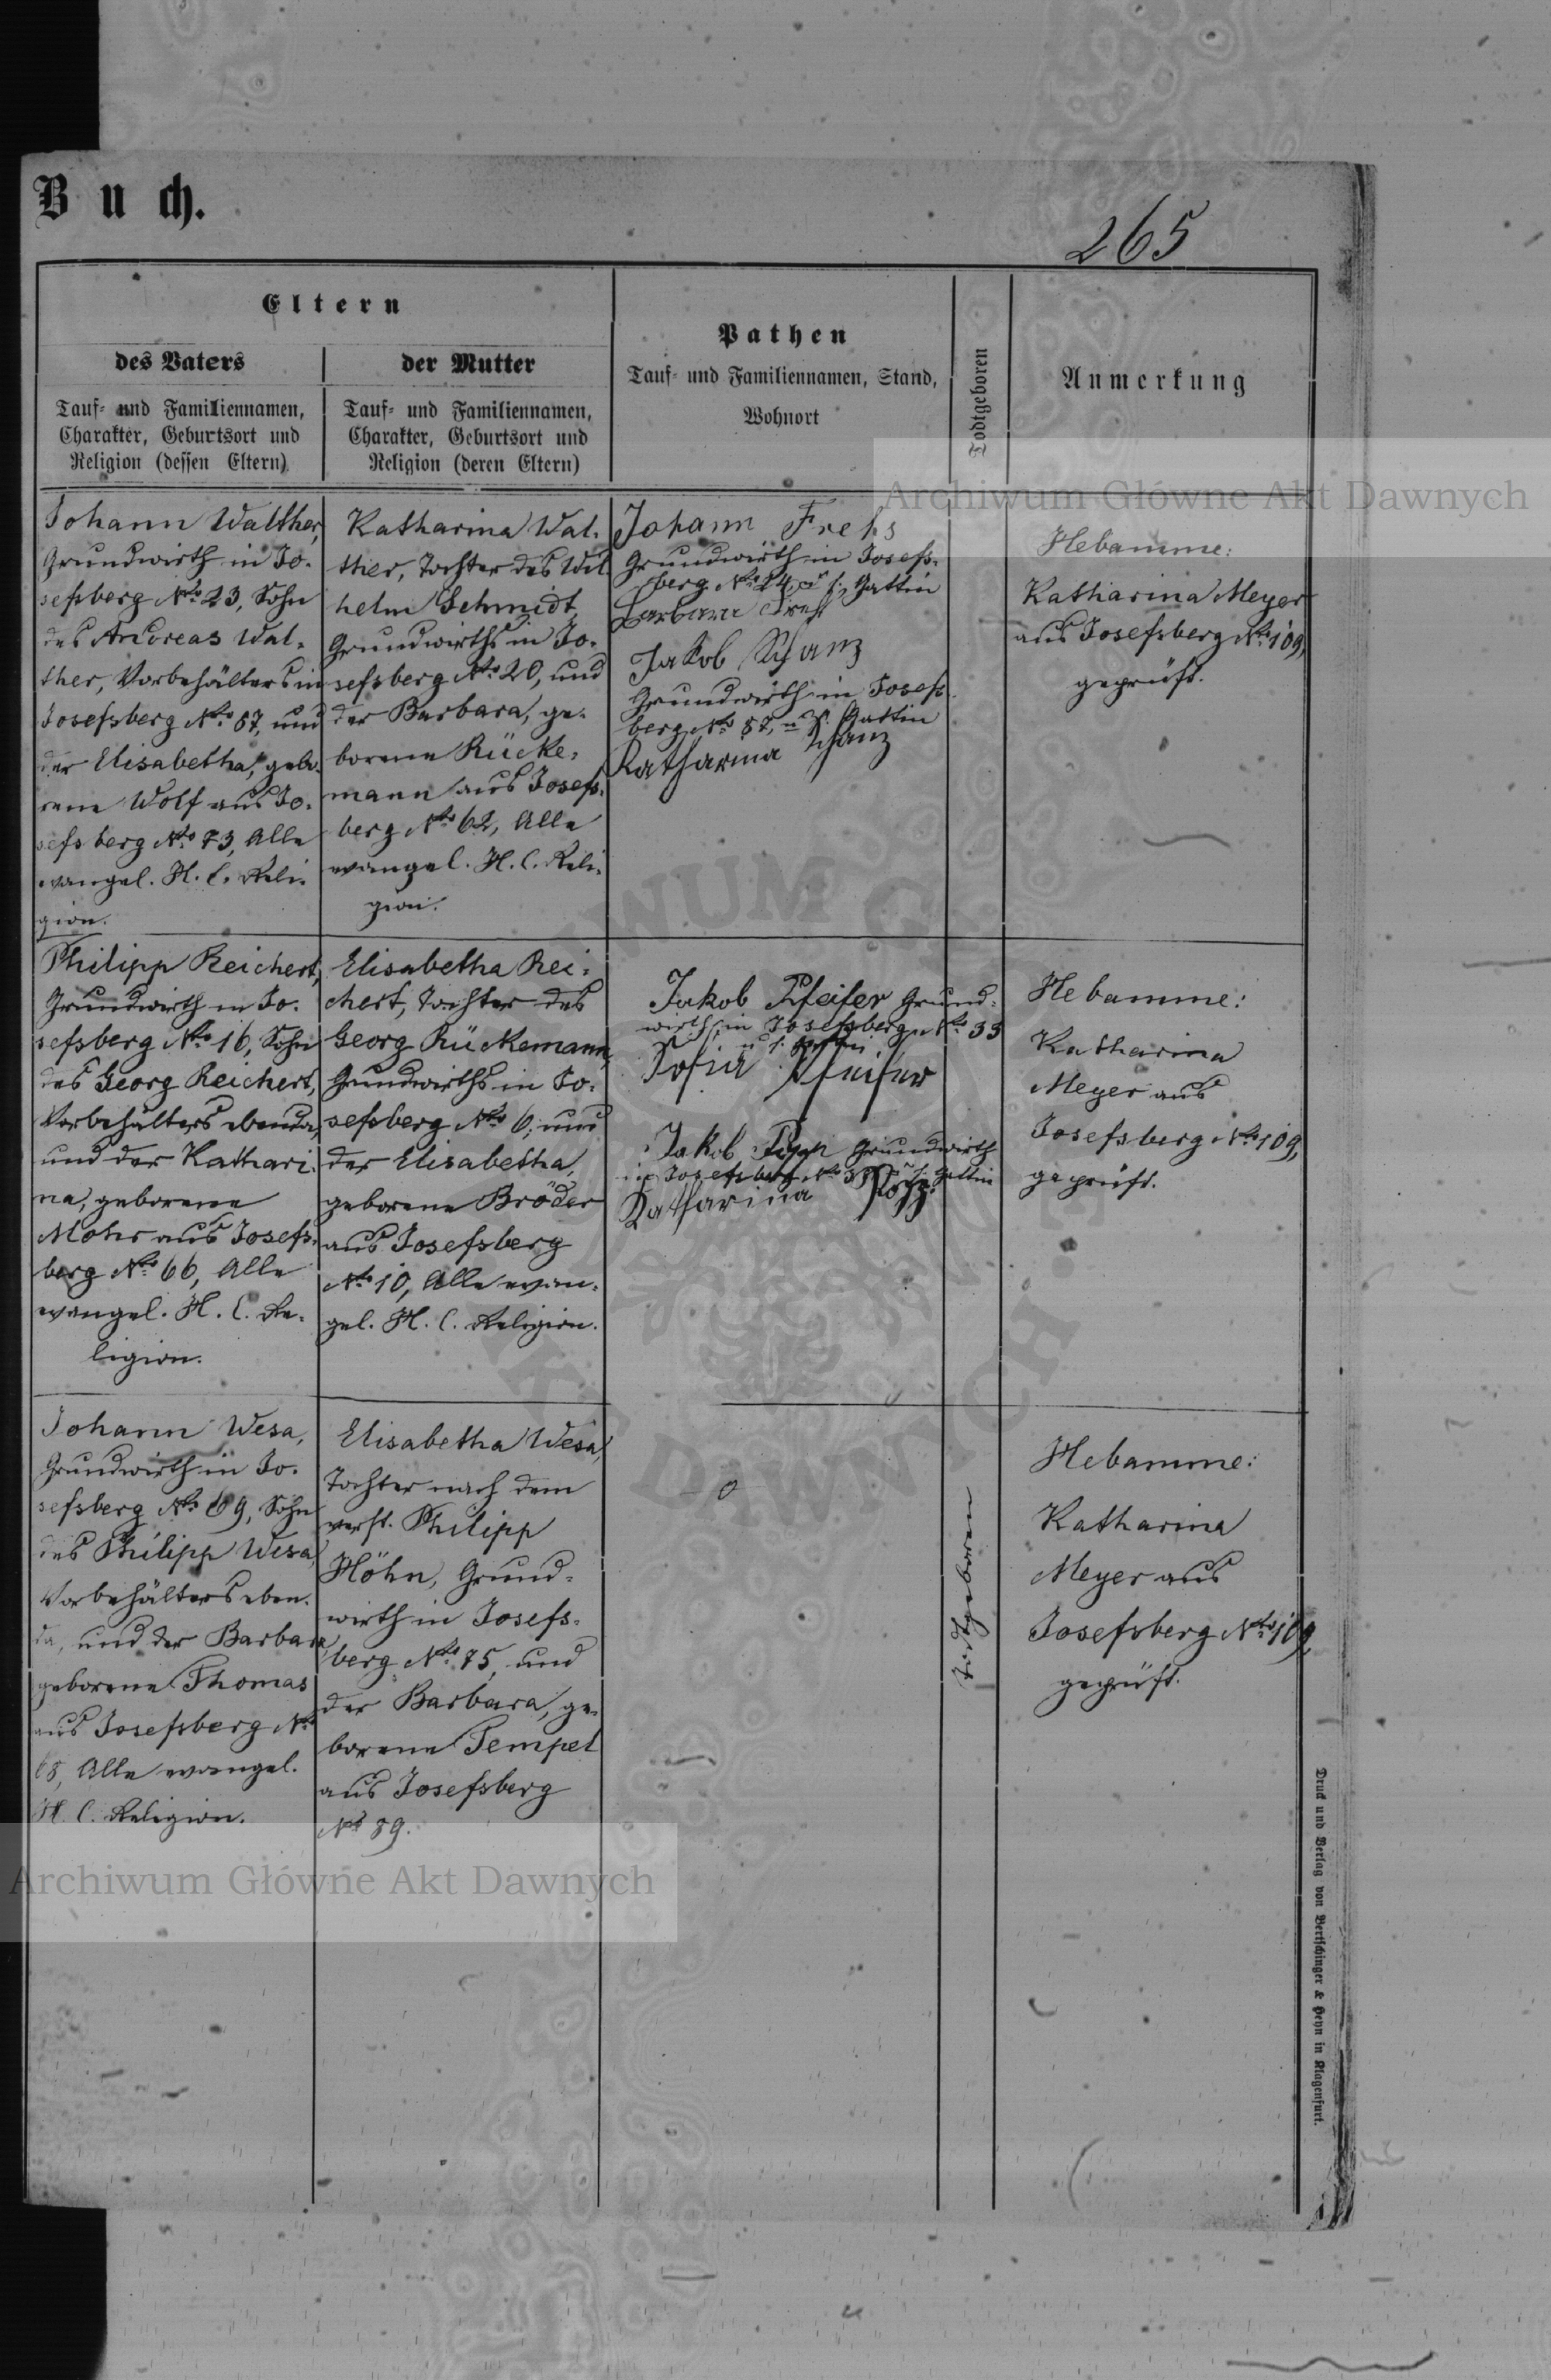 Buch.
265
Eltern
des Vaters
der Mutter
Tauf- und Familiennamen,
Charakter, Geburtsort und
Religion (dessen Eltern)
Tauf- und Familiennamen,
Charakter, Geburtsort und
Religion (deren Eltern)
Pathen
Tauf- und Familiennamen, Stand,
Wohnort
Todtgeboren
Anmerkung
Archiwum Główne Akt Dawnych
Johann Walther,
Grundwirth in Jo-
sefsberg No 23, Sohn
des Andreas Wal-
ther, Vorbehälters in
Josefsberg No 87, und
der Elisabetha, gebo-
rene Wolf aus Jo-
sefsberg No 73, Alle
evangel. H. C. Reli-
gion.
Katharina Wal-
ther, Tochter des Wil
helm Schmidt,
Grundwirths in Jo-
sefsberg No 20, und
der Barbara, ge-
borene Rücke-
mann aus Josefs-
berg No 62, Alle
evangel. H. C. Reli-
gion.
Johann
Grundwirth in Josefs-
berg No 24, u. s. Gattin
Barbara
Jakob Schanz
Grundwirth in Josefs-
berg No 87, u. s. Gattin
Katharina Schanz
Hebamme:
Katharina Meyer
aus Josefsberg No 109,
geprüft.
Philipp Reichert,
Grundwirth in Jo-
sefsberg No 16, Sohn
des Georg Reichert,
Vorbehälters ebenda,
und der Kathari-
na, geborene
Mohr aus Josefs-
berg No 66, Alle
evangel. H. C. Re-
ligion.
Elisabetha Rei-
chert, Tochter des
Georg Rückemann,
Grundwirths in Jo-
sefsberg No 6, und
der Elisabetha,
geborene Bröder
aus Josefsberg
No 10, Alle evan-
gel. H. C. Religion.
Jakob Pfeifer Grund-
wirth in Josefsberg No 33
u. s. Gattin
Sofia Pfeifer
Jakob Grundwirth
in Josefsberg No u. s. Gattin
Katharina
Hebamme:
Katharina
Meyer aus
Josefsberg No 109,
geprüft.
Johann Wesa,
Grundwirth in Jo-
sefsberg No 69, Sohn
des Philipp Wesa,
Vorbehälters eben-
da, und der Barbara
geborene Thomas
aus Josefsberg No
68, Alle evangel.
H. C. Religion.
Elisabetha Wesa,
Tochter nach dem
verst. Philipp
Höhn, Grund-
wirth in Josefs-
berg No 75, und
der Barbara, ge-
borene Tempel
aus Josefsberg
No 89.
- o
todtgeboren
Hebamme:
Katharina
Meyer aus
Josefsberg No 109,
geprüft.
Druck und Verlag von Bertschinger & Heyn in Klagenfurt.
Archiwum Główne Akt Dawnych